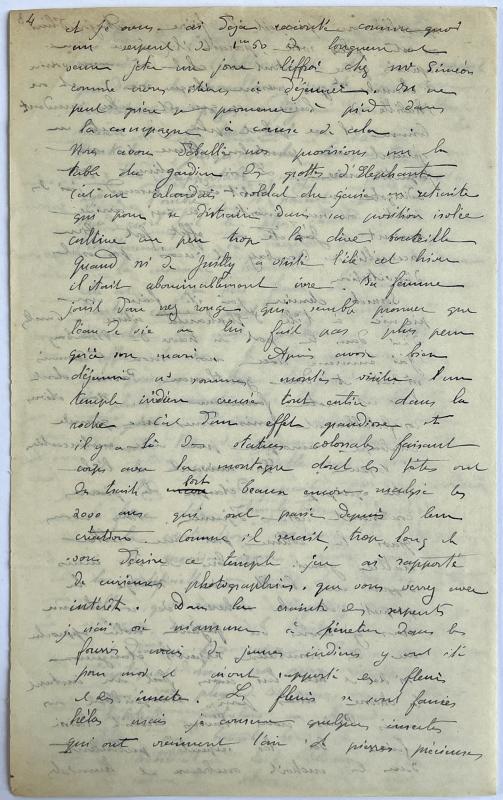 4
et je vous ai déjà raconté comme quoi
un serpent de 1m50 de longueur est
venu jeter un jour l'effroi chez mr Siméon
comme nous étions à déjeuner. On ne
peut guère se promener à pied dans
la campagne à cause de cela.
Nous avons déballé nos provisions sur la
table du gardien des grottes d'Elephanta
C'est un irlandais soldat du génie en retraite
qui pour se distraire dans sa position isolée
cultive un peu trop la dive bouteille
Quand mr de Juilly a visité l'île cet hiver
il était abominablement ivre. Sa femme
jouit d'un nez rouge qui semble prouver que
l'eau de vie ne lui fait pas plus peur
qu'à son mari. Après avoir bien
déjeuné nous sommes montés visiter l'un
temple indien creusé tout entier dans la
roche. C'est d'un effet grandiose et
il y a là des statues colossales faisant
corps avec la montagne dont les têtes ont
des traits fort beaux encore malgré les
2000 ans qui ont passé depuis leur
création. Comme il serait trop long de
vous décrire ce temple j'en ai rapporté
de curieuses photographies que vous verrez avec
intérêt. Dans la crainte des serpents
je n'ai osé m'amuser à pénétrer dans les
fourrés mais de jeunes indiens y ont été
pour moi et m'ont rapporté des fleurs
et des insectes. Les fleurs se sont fanées
hélas mais je conserve quelques insectes
qui ont vraiment l'air de pierres précieuses